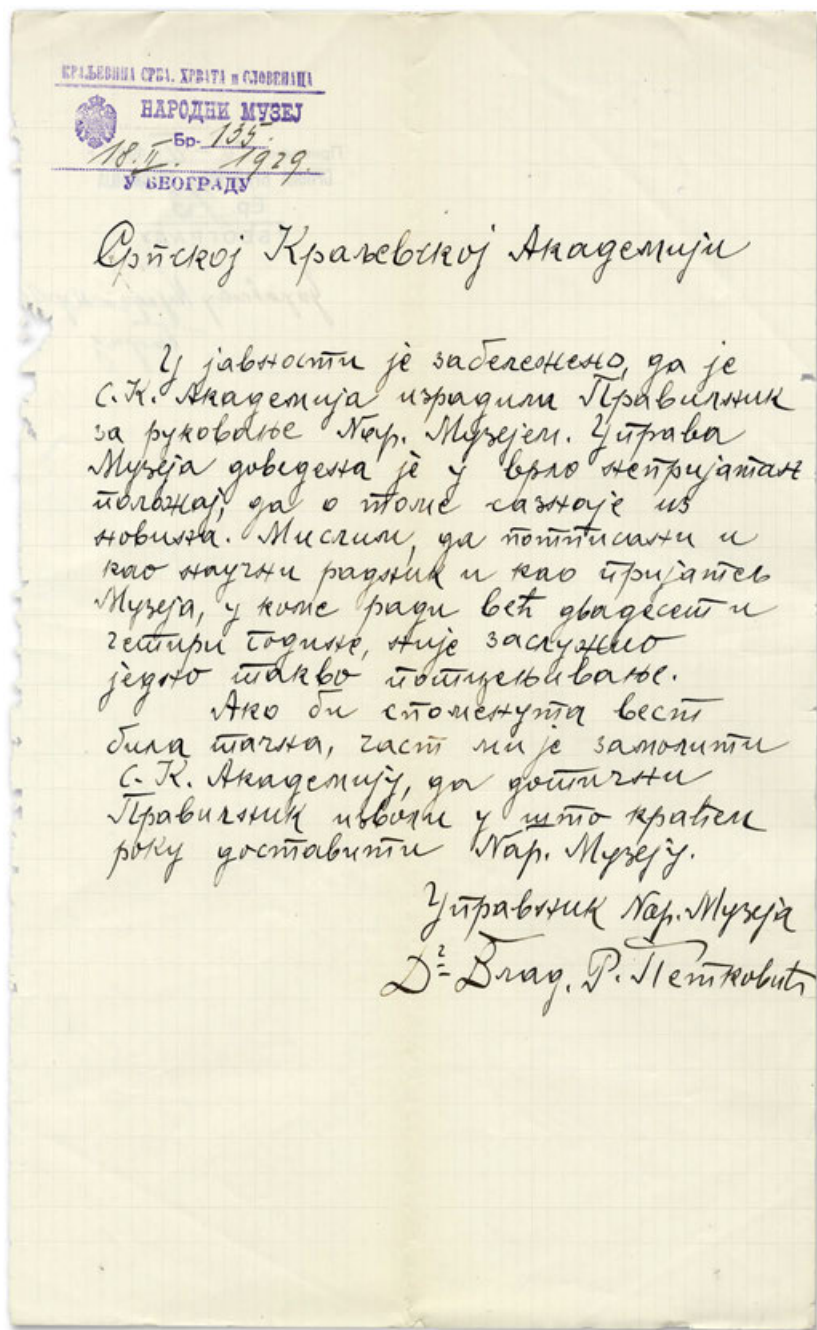 КРАЉЕВИНА СРБА, ХРВАТА и СЛОВЕНАЦА
НАРОДНИ МУЗЕЈ
Бр. 135.
18. II. 1929.
У БЕОГРАДУ
Српској Краљевској Академији
У јавности је забележено, да је
С. К. Академија израдила Правилник
за руковање Нар. Музејем. Управа
Музеја доведена је у врло непријатан
положај, да о томе сазнаје из
новина. Мислим, да потписани и
као научни радник и као пријатељ
Музеја, у коме ради већ двадесет и
четири године, није заслужио
једно такво потцењивање.
Ако би споменута вест
била тачна, част ми је замолити
С. К. Академију, да дотични
Правилник изволи у што краћем
року доставити Нар. Музеју.
Управник Нар. Музеја
Др Влад. Р. Петковић